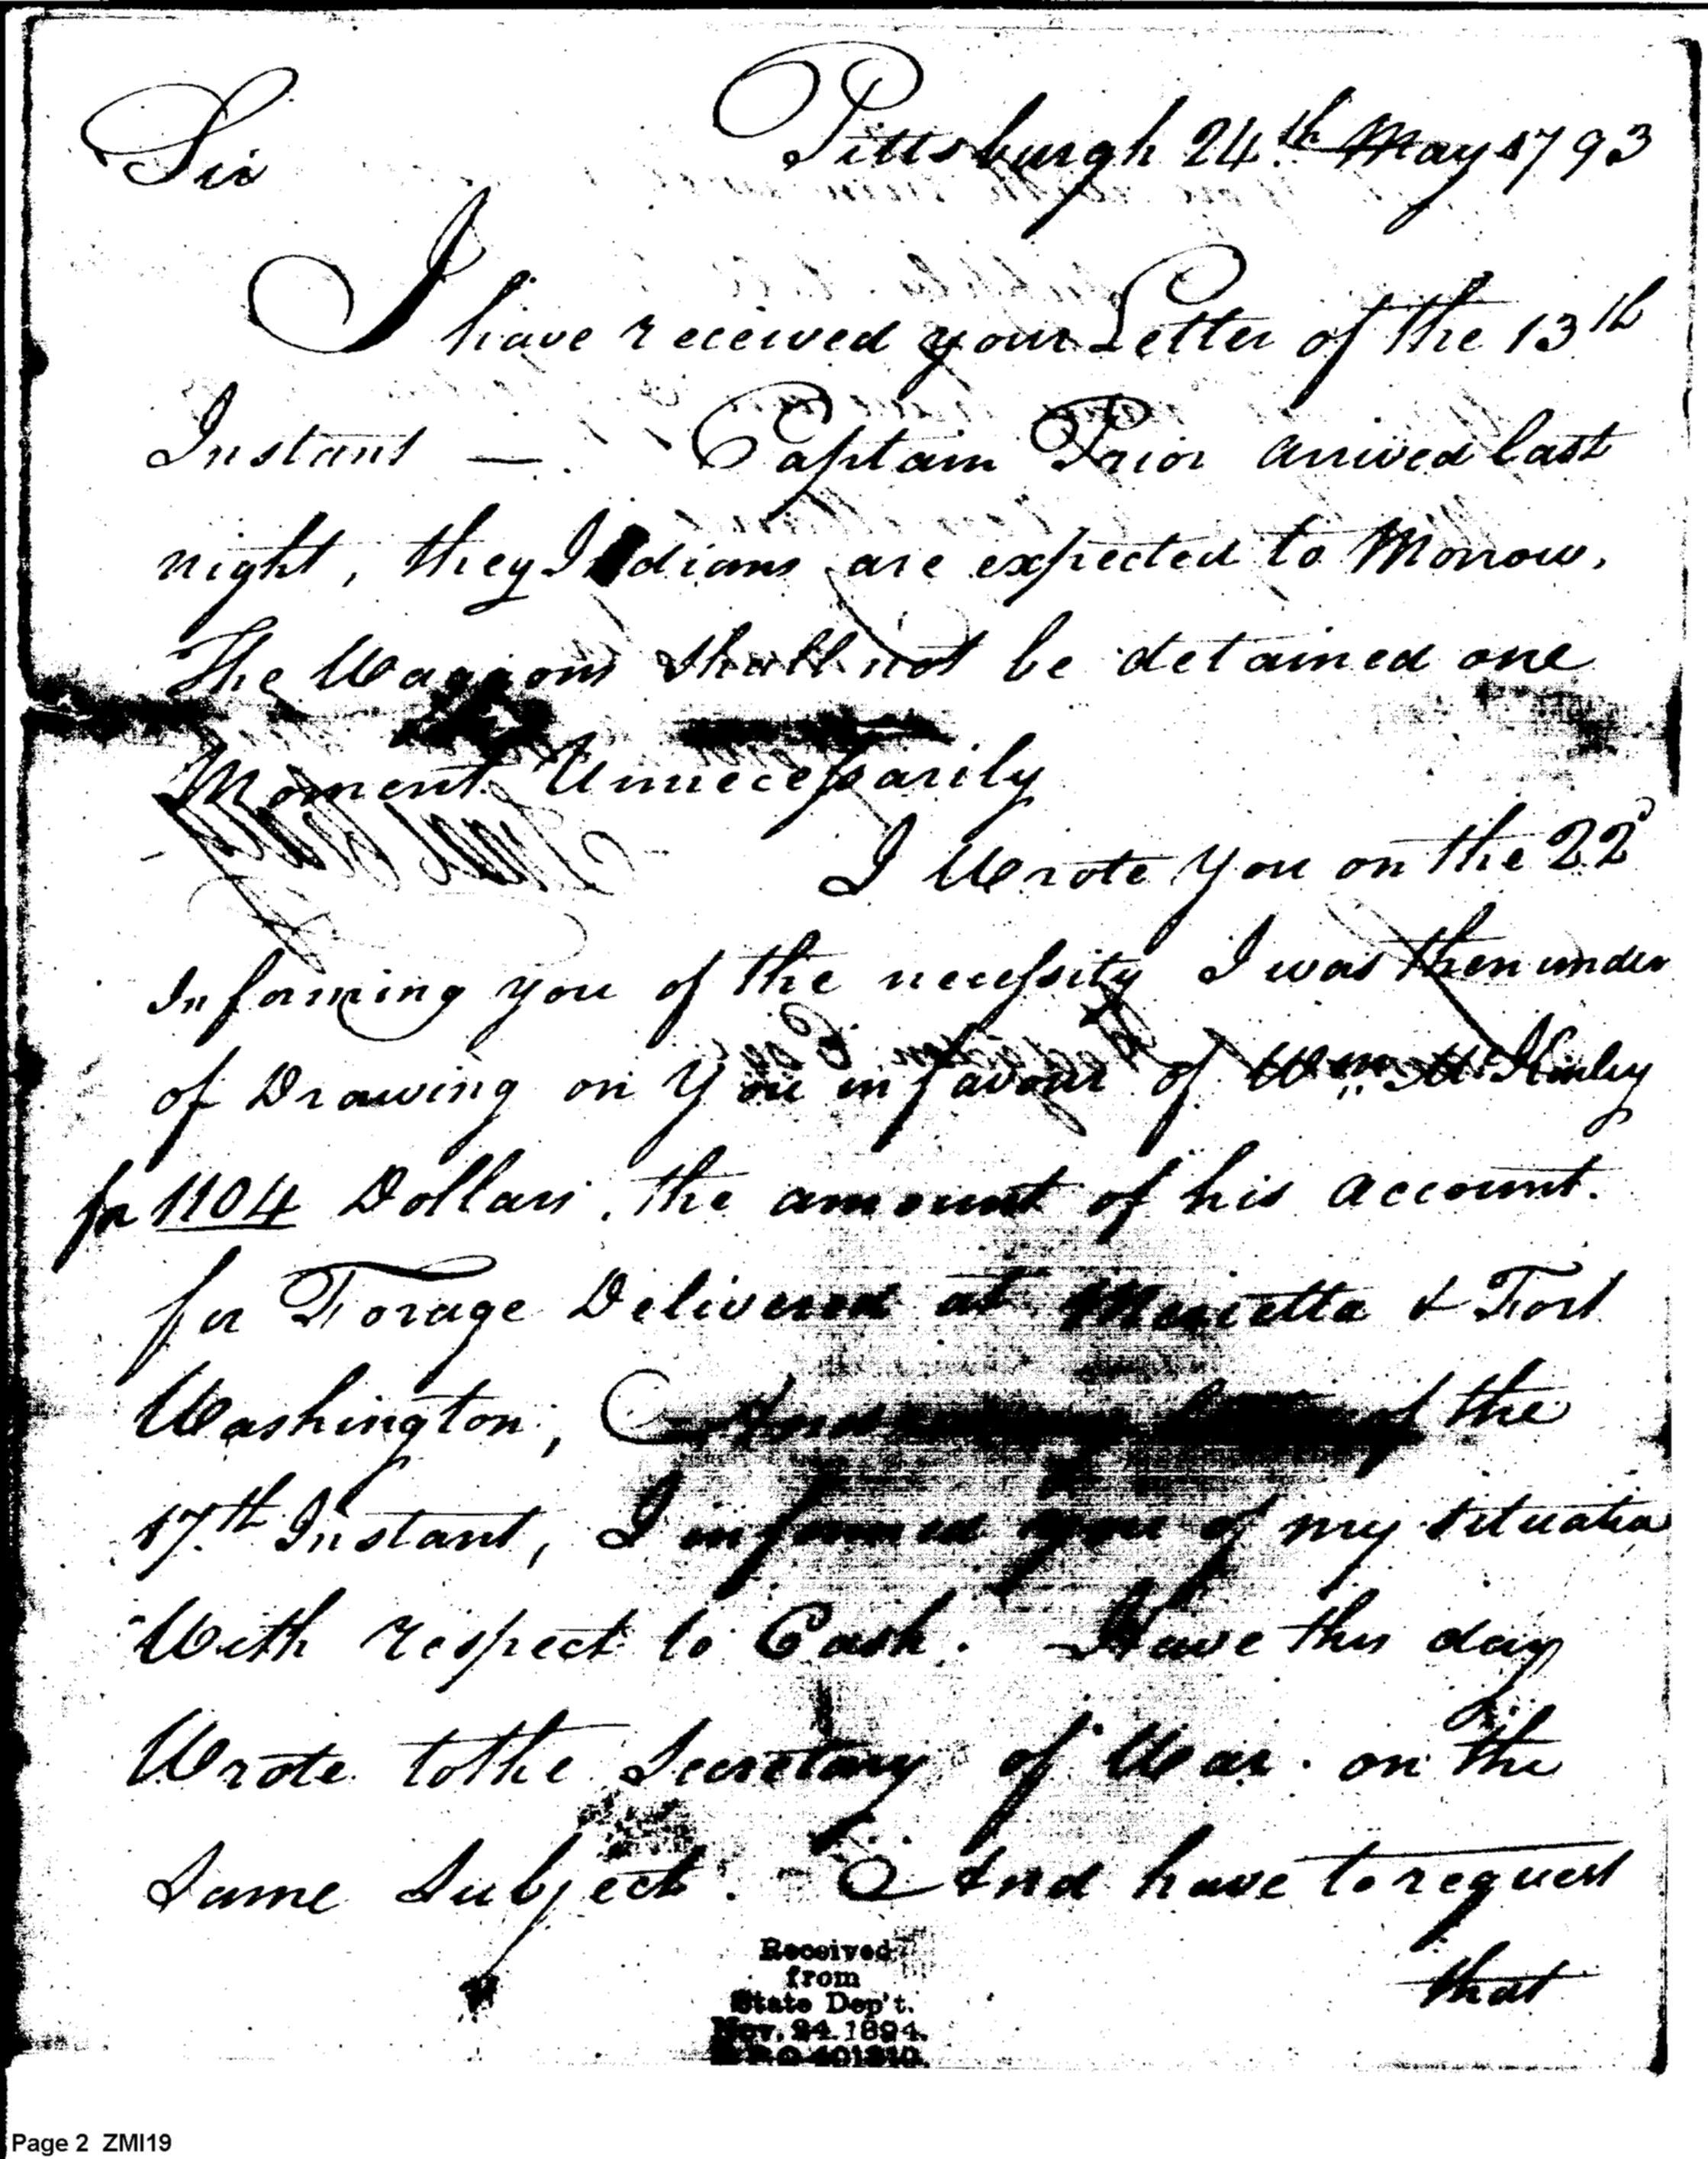 Sir
Pittsburgh 24th May 1793
I have received your Letter of the 13th
Instant —. Captain Prior arrived last
night, they Indians are expected to Morrow.
The Waggons shall not be detained one
Moment Unnecessarily
I Wrote you on the 22
Informing you of the necessity I was then under
of Drawing on You in favour of Wm McKinley
for 1104 Dollars, the amount of his account.
for Forage Delivered at Marietta & Fort
Washington, of the
17th Instant, I informed you of my situatio
With respect to Cash. Have this day
Wrote to the Secretary of War. on the
Same Subject. And have to request
that
Received
from
State Dep't.
Nov. 24. 1894.
Page 2 ZMI19